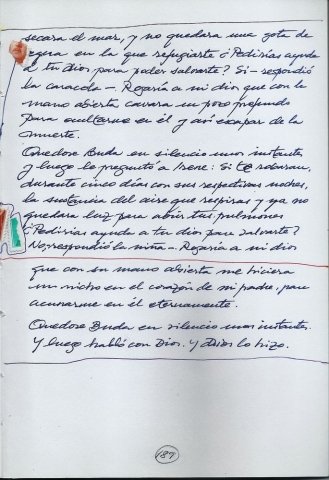 secara el mar, y no quedara una gota de
agua en la que refugiarte ¿Pedirías ayuda
a tu dios para poder salvarte? Si - respondió
la caracola -. Rogaría a mi dios que con la
mano abierta cavara un pozo profundo
para ocultarme en él y así escapar de la
muerte.
Quedose Buda en silencio unos instantes
y luego le preguntó a Irene: Si te robaran,
durante cinco días con sus respectivas noches,
la sustancia del aire que respiras y ya no
quedara luz para abrir tus pulmones
¿Pedirías ayuda a tu dios para salvarte?
No, respondió la niña -. Rogaría a mi dios
que con su mano abierta me hiciera
un nicho en el corazón de mi padre, para
acunarme en él eternamente.
Quedose Buda en silencio unos instantes.
Y luego habló con Dios. Y Dios lo hizo.
187